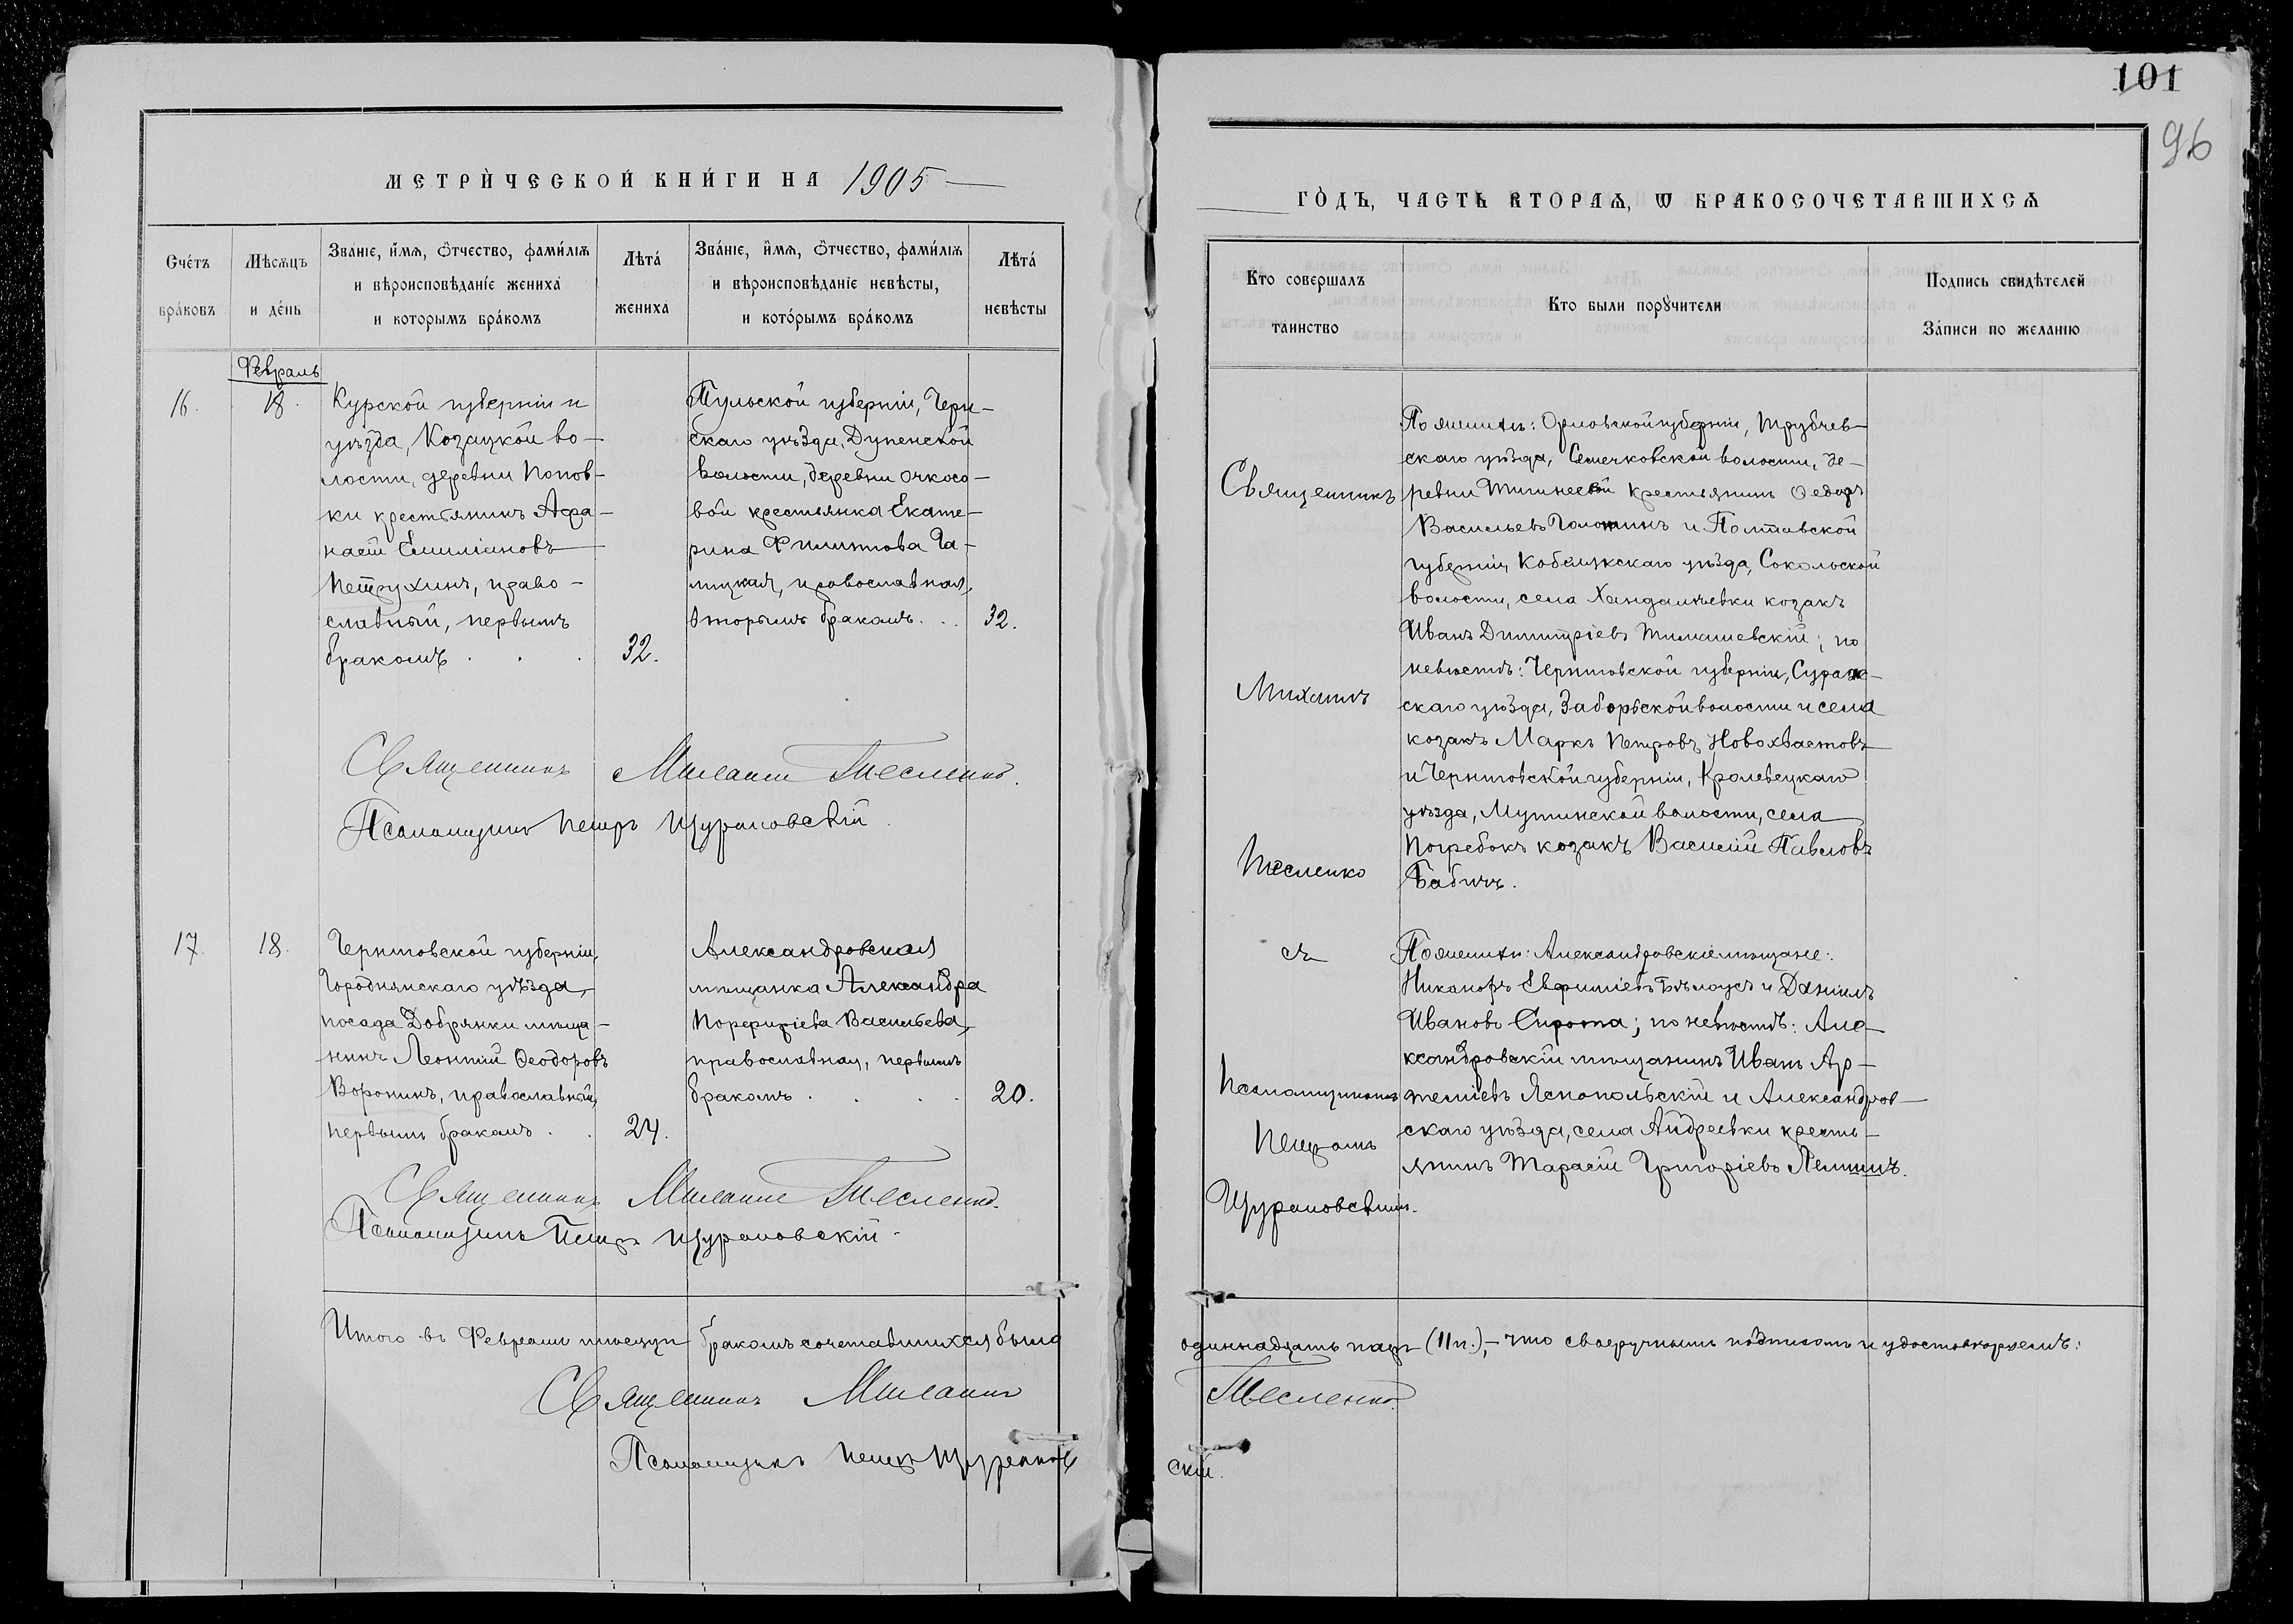 101
96
МЕТРИ́ЧЕСКОЙ КНИ́ГИ НА 1905
ГО́ДЪ, ЧАСТЬ ВТОРАѦ, Ѡ БРАКОСОЧЕТАВШИХСѦ
Сче́тъ
бра́ковъ
Мѣсѧцъ
и де́нь
Зва́нїе, и́мѧ, ѻ́тчество, фами́лїѧ
и вѣроисповѣда́нїе жениха̀
и которымъ бра́комъ
Лѣта́
жениха
Зва́нїе, и́мѧ, ѻ́тчество, фами́лїѧ
и вѣроисповѣданїе невѣсты,
и кото́рымъ бра́комъ
Лѣта́
невѣсты
Кто совершалъ
таинство
Кто были порꙋчители
Подпись свидѣтелей
За́писи по желанїю
Февраль
16.
18.
Курской губерніи и
уѣзда, Козацкой во-
лости, деревни Попов-
ки крестьянинъ Афа-
насій Емиліановъ
Петрухинъ, право-
славный, первымъ
бракомъ . . .
32.
Тульской губерніи, Черн-
скаго уѣзда,
волости, деревни
вой крестьянка Екате-
рина Филиппова Га-
лицкая, православная,
вторымъ бракомъ. . .
32.
Священникъ Михаилъ Тесленко.
Псаломщикъ Петръ Щурановскій
Священникъ
Михаилъ
Тесленко
съ
Псаломщикомъ
Петромъ
Щурановскимъ.
По женихѣ: Орловской губерніи, Трубчев-
скаго уѣзда, Семячковской волости, де-
ревни крестьянинъ Ѳеодоръ
Васильевъ и Полтавской
губерніи, Кобелякскаго уѣзда, Сокольской
волости, села Хандалѣевки козакъ
Иванъ Димитріевъ Тимашевскій; по
невѣстѣ: Черниговской губерніи, Сураж-
скаго уѣзда, Заборьской волости и села
козакъ Маркъ Петровъ Новохвастовъ
и Черниговской губерніи, Кролевецкаго
уѣзда, Мутинской волости, села
Погребокъ козакъ Василій Павловъ
Бабичъ.
17.
18.
Черниговской губерніи,
Городнянскаго уѣзда,
посада Добрянки мѣща-
нинъ Леонтій Ѳеодоровъ
Воронинъ, православный,
первымъ бракомъ . .
24.
Александровская
мѣщанка Александра
Порфиріева Васильева,
православная, первымъ
бракомъ . . . .
20.
По женихѣ: Александровскіе мѣщане:
Никаноръ Евфиміевъ Бѣлоусъ и Даніилъ
Ивановъ Сирота; по невѣстѣ: Але-
ксандровскій мѣщанинъ Иванъ Ар-
теміевъ Яснопольскій и Александров-
скаго уѣзда, села Андреевки кресть-
янинъ Тарасій Григоріевъ
Священникъ Михаилъ Тесленко.
Псаломщикъ Петръ Щурановскій.
Итого въ Февралѣ мѣсяцѣ бракомъ сочетавшихся было одиннадцать паръ (11 п.),- что своеручнымъ подписомъ и удостовѣряемъ:
Священникъ Михаилъ Тесленко.
Псаломщикъ Петръ Щурановскій.